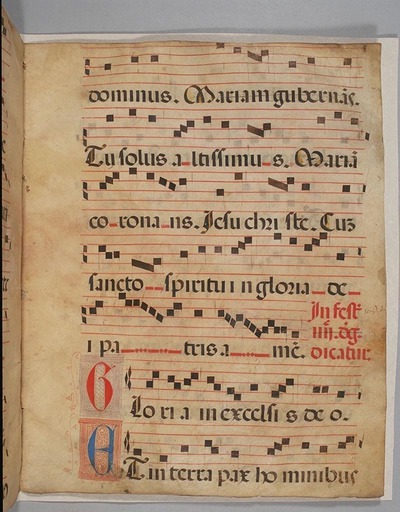 dominus. Mariam gubernās.
Tu solus a ltissimu s. Mariā
co rona ns. Jesu chri ste. Cuȝ
sancto spiritu i n gloria de
i pa tris. a mē.
In fest
dicatur.
Glo ri a in excelsi s de o.
Et in terra pax ho minibus